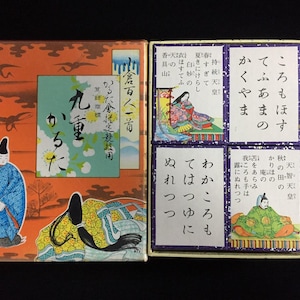 小倉百人一首
九重
かるた
持統天皇
春すぎて
夏きにけらし
白妙の
衣ほすてふ
天の
香具山
ころもほす
てふあまの
かくやま
わかころも
てはつゆに
ぬれつつ
天智天皇
秋の田の
かりほの
庵の
苫をあらみ
我ころも手は
露にぬれつつ